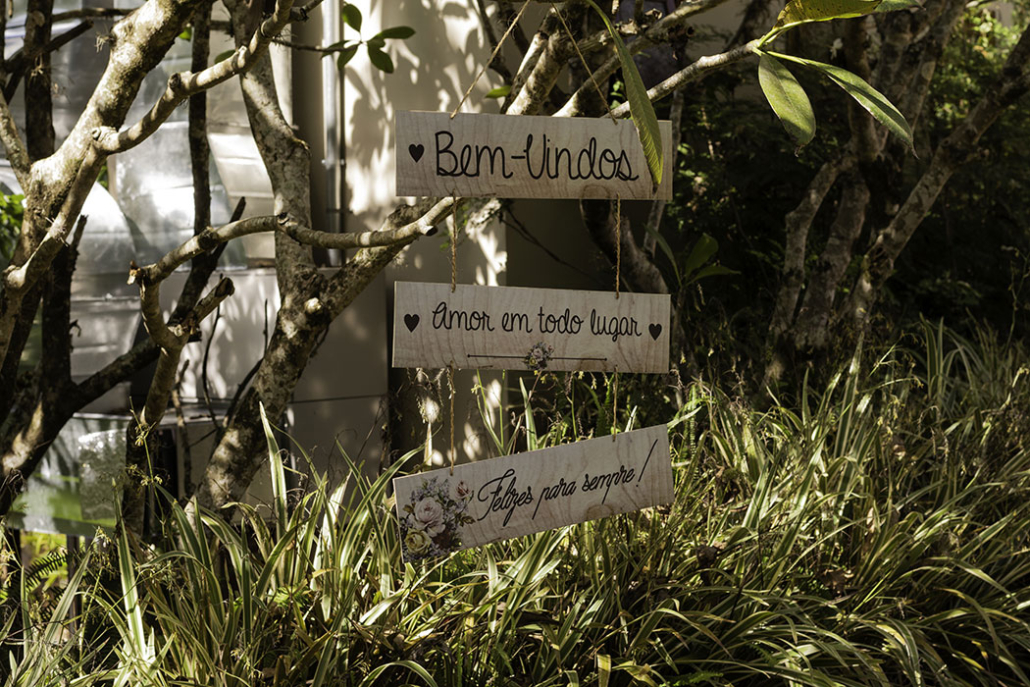 Bem-Vindos
Amor em todo lugar
Felizes para sempre!